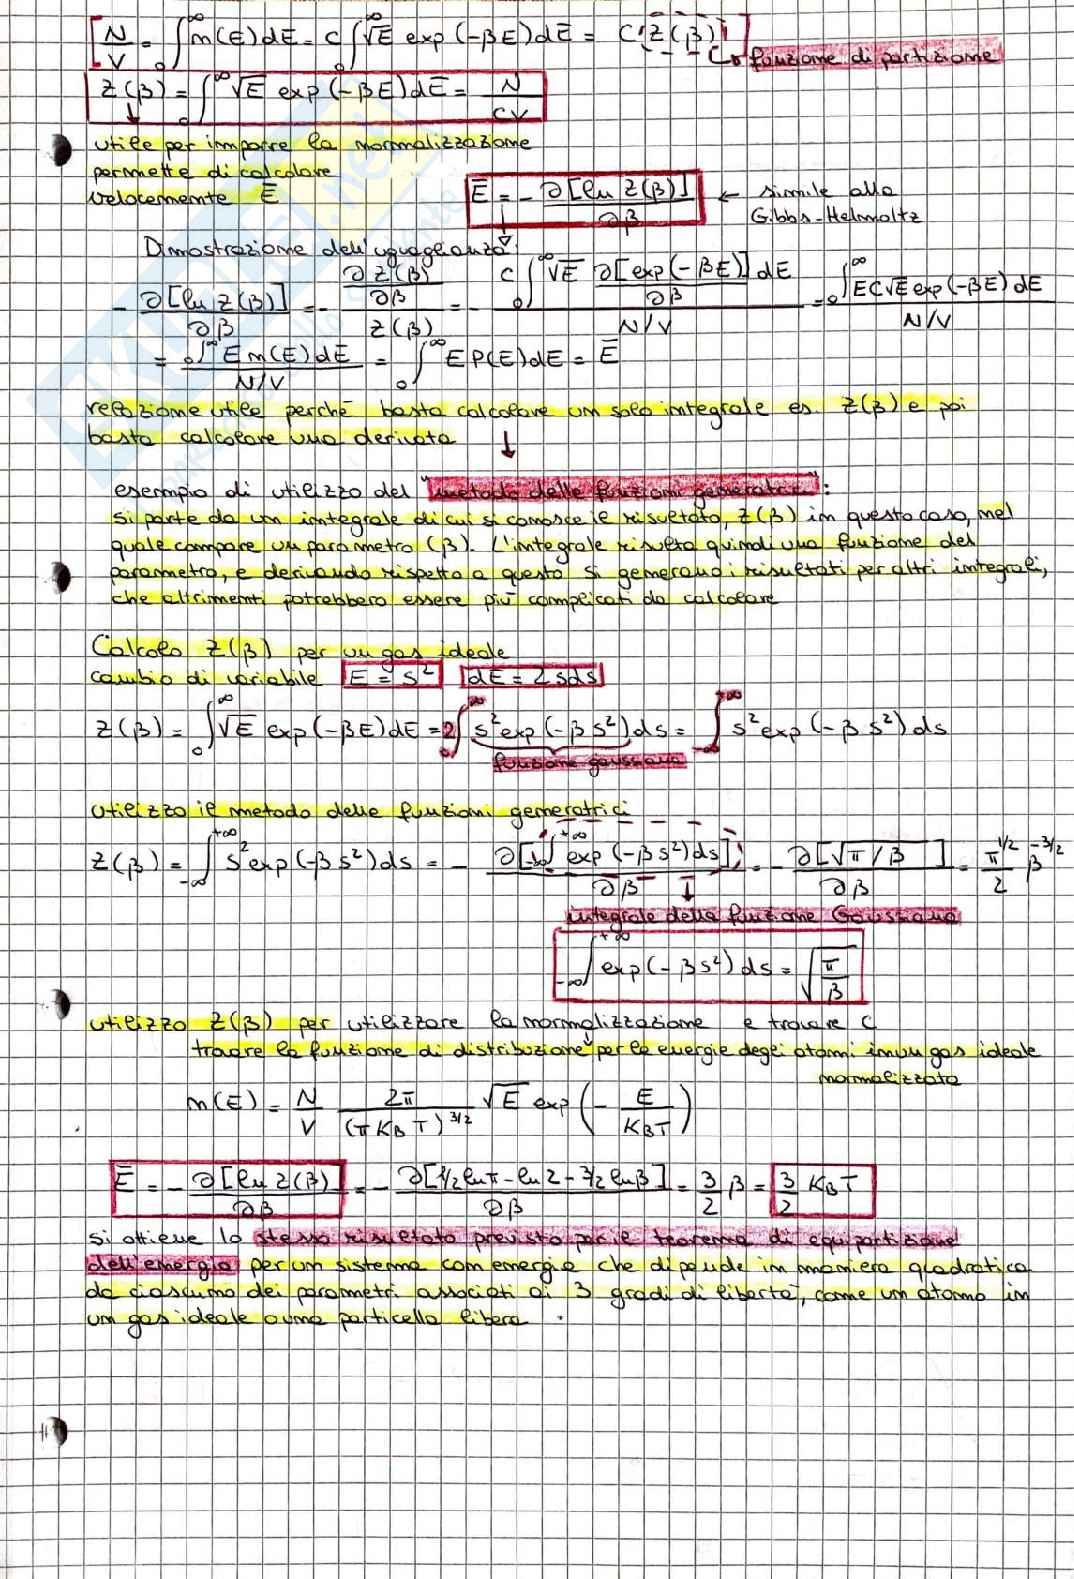 [N/V = ∫₀^∞ n(E)dE = C ∫₀^∞ √E exp(-βE)dE = C[Z(β)]]
↳ funzione di partizione
Z(β) = ∫₀^∞ √E exp(-βE)dE = N/CV
↓
utile per imporre la normalizzazione
permette di calcolare
velocemente Ē
Ē = - ∂[ln Z(β)]/∂β ← simile alla
Gibbs-Helmoltz
Dimostrazione dell'uguaglianza:
- ∂[ln Z(β)]/∂β = - (∂Z(β)/∂β)/Z(β) = - (C ∫₀^∞ √E ∂[exp(-βE)]/∂β dE)/(N/V) = (∫₀^∞ E C √E exp(-βE)dE)/(N/V)
= (∫₀^∞ E n(E)dE)/(N/V) = ∫₀^∞ E P(E)dE = Ē
relazione utile perché basta calcolare un solo integrale es. Z(β) e poi
basta calcolare una derivata ↓
esempio di utilizzo del "metodo delle funzioni generatrici":
si parte da un integrale di cui si conosce il risultato, Z(β) in questo caso, nel
quale compare un parametro (β). L'integrale risulta quindi una funzione del
parametro, e derivando rispetto a questo si generano i risultati per altri integrali,
che altrimenti potrebbero essere più complicati da calcolare
Calcolo Z(β) per un gas ideale
cambio di variabile E = s² dE = 2sds
Z(β) = ∫₀^∞ √E exp(-βE)dE = 2∫₀^∞ s² exp(-βs²)ds = ∫₋∞^+∞ s² exp(-βs²)ds
funzione gaussiana
utilizzo il metodo delle funzioni generatrici
Z(β) = ∫₋∞^+∞ s² exp(-βs²)ds = - ∂[∫₋∞^+∞ exp(-βs²)ds]/∂β = - ∂[√π/β]/∂β = π^1/2/2 β^-3/2
↓
integrale della funzione Gaussiana
∫₋∞^+∞ exp(-βs²)ds = √(π/β)
utilizzo Z(β) per utilizzare la normalizzazione e trovare C
trovare la funzione di distribuzione per le energie degli atomi in un gas ideale
normalizzata
n(E) = N/V 2π/(πK_BT)^3/2 √E exp(- E/K_BT)
Ē = - ∂[ln Z(β)]/∂β = - ∂[1/2 lnπ - ln2 - 3/2 lnβ]/∂β = 3/2 β = 3/2 K_BT
si ottiene lo stesso risultato previsto per il teorema di equipartizione
dell'energia per un sistema con energia che dipende in maniera quadratica
da ciascuno dei parametri associati ai 3 gradi di libertà, come un atomo in
un gas ideale o una particella libera.